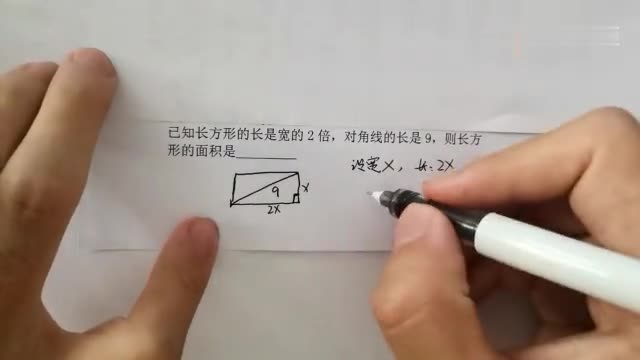 已知长方形的长是宽的2倍，对角线的长是9，则长方
形的面积是________
设宽X，长:2X
9
X
2X